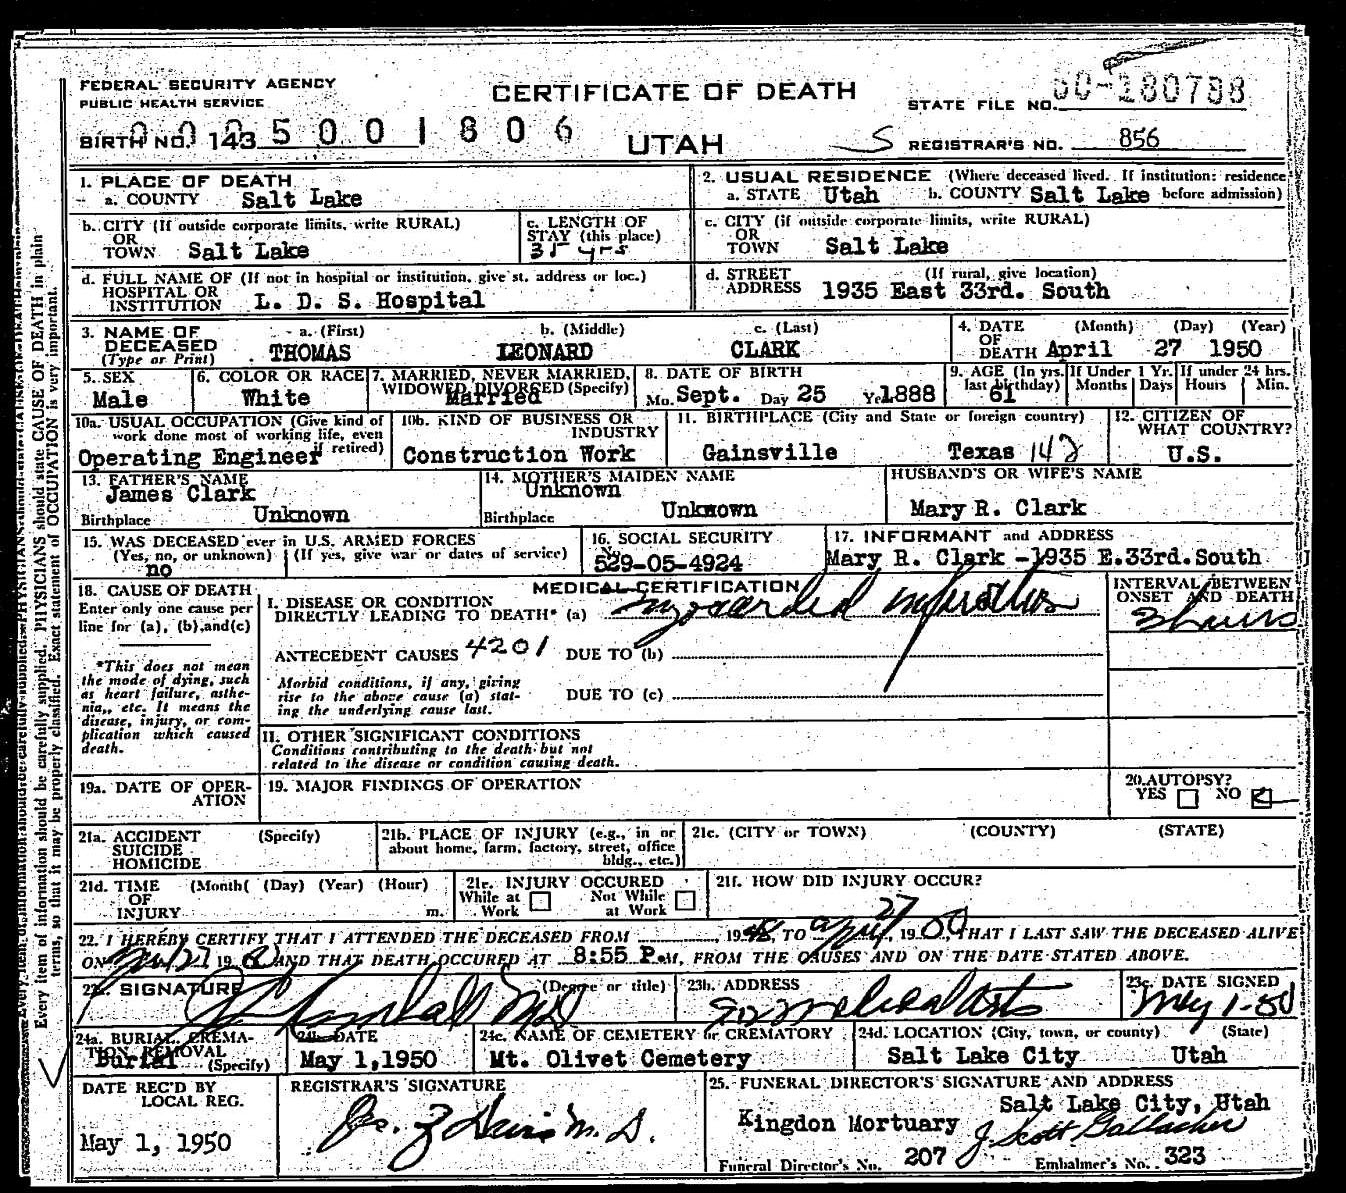 FEDERAL SECURITY AGENCY
PUBLIC HEALTH SERVICE
CERTIFICATE OF DEATH
STATE FILE NO. 50-180788
BIRTH NO. 143 5001806
UTAH
S REGISTRAR'S NO. 856
1. PLACE OF DEATH
a. COUNTY Salt Lake
2. USUAL RESIDENCE (Where deceased lived. If institution: residence
a. STATE Utah b. COUNTY Salt Lake before admission)
b. CITY (If outside corporate limits, write RURAL)
OR
TOWN Salt Lake
c. LENGTH OF
STAY (this place)
35 yrs
c. CITY (if outside corporate limits, write RURAL)
OR
TOWN Salt Lake
d. FULL NAME OF (If not in hospital or institution, give st. address or loc.)
HOSPITAL OR
INSTITUTION L. D. S. Hospital
d. STREET (If rural, give location)
ADDRESS 1935 East 33rd. South
3. NAME OF DECEASED (Type or Print)
a. (First) b. (Middle) c. (Last)
THOMAS LEONARD CLARK
4. DATE OF DEATH (Month) (Day) (Year)
April 27 1950
5. SEX
Male
6. COLOR OR RACE
White
7. MARRIED, NEVER MARRIED,
WIDOWED, DIVORSED (Specify)
Married
8. DATE OF BIRTH
Mo. Sept. Day 25 Yr. 1888
9. AGE (In yrs. last birthday)
61
If Under 1 Yr.
Months Days
If under 24 hrs.
Hours Min.
10a. USUAL OCCUPATION (Give kind of
work done most of working life, even
if retired)
Operating Engineer
10b. KIND OF BUSINESS OR
INDUSTRY
Construction Work
11. BIRTHPLACE (City and State or foreign country)
Gainsville Texas 142
12. CITIZEN OF
WHAT COUNTRY?
U.S.
13. FATHER'S NAME
James Clark
Birthplace Unknown
14. MOTHER'S MAIDEN NAME
Unknown
Birthplace Unknown
HUSBAND'S OR WIFE'S NAME
Mary R. Clark
15. WAS DECEASED ever in U.S. ARMED FORCES
(Yes, no, or unknown) (If yes, give war or dates of service)
no
16. SOCIAL SECURITY
No.
529-05-4924
17. INFORMANT and ADDRESS
Mary R. Clark -1935 E.33rd.South
18. CAUSE OF DEATH
Enter only one cause per
line for (a), (b), and (c)
*This does not mean
the mode of dying, such
as heart failure, asthe-
nia,, etc. It means the
disease, injury, or com-
plication which caused
death.
MEDICAL CERTIFICATION
I. DISEASE OR CONDITION
DIRECTLY LEADING TO DEATH* (a) myocardial infarction
ANTECEDENT CAUSES 4201 DUE TO (b)
Morbid conditions, if any, giving
rise to the above cause (a) stat-
ing the underlying cause last.
DUE TO (c)
INTERVAL BETWEEN
ONSET AND DEATH
3 hours
II. OTHER SIGNIFICANT CONDITIONS
Conditions contributing to the death but not
related to the disease or condition causing death.
19a. DATE OF OPER-
ATION
19. MAJOR FINDINGS OF OPERATION
20. AUTOPSY?
YES NO
21a. ACCIDENT (Specify)
SUICIDE
HOMICIDE
21b. PLACE OF INJURY (e.g., in or
about home, farm, factory, street, office
bldg., etc.)
21c. (CITY or TOWN) (COUNTY) (STATE)
21d. TIME (Month( (Day) (Year) (Hour)
OF
INJURY m.
21e. INJURY OCCURED
While at Work Not While at Work
21f. HOW DID INJURY OCCUR?
22. I HEREBY CERTIFY THAT I ATTENDED THE DECEASED FROM , 1948, TO April 27, 1950, THAT I LAST SAW THE DECEASED ALIVE
ON 27 19 50 AND THAT DEATH OCCURED AT 8:55 P.M, FROM THE CAUSES AND ON THE DATE STATED ABOVE.
SIGNATURE (Degree or title)
23b. ADDRESS
Medical Arts
23c. DATE SIGNED
May 1-50
24a. BURIAL, CREMA-
TION, REMOVAL
(Specify)
Burial
24b. DATE
May 1,1950
24c. NAME OF CEMETERY or CREMATORY
Mt. Olivet Cemetery
24d. LOCATION (City, town, or county) (State)
Salt Lake City Utah
DATE REC'D BY
LOCAL REG.
May 1, 1950
REGISTRAR'S SIGNATURE
M. D.
25. FUNERAL DIRECTOR'S SIGNATURE AND ADDRESS
Salt Lake City, Utah
Kingdon Mortuary J. Scott Gallacher
Funeral Director's No. 207 Embalmer's No. 323
Every item of information should be carefully supplied. PHYSICIANS should state CAUSE OF DEATH in plain
terms, so that it may be properly classified. Exact statement of OCCUPATION is very important.